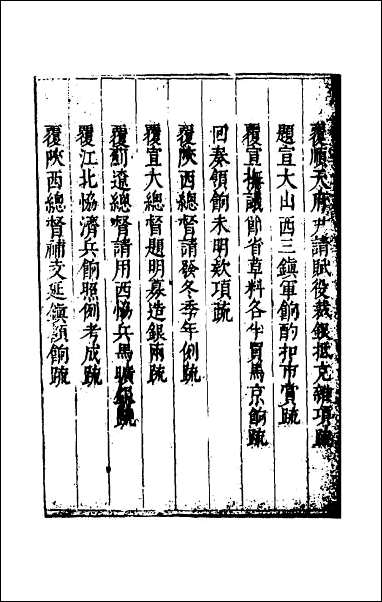 覆順天府尹請賦役裁銀抵充雜項疏
題宣大山西三鎮軍餉酌扣市賞疏
覆宣撫議節省草料各半買馬京餉疏
回秦領餉未明欵項疏
覆陝西總督請發冬季年例疏
覆宣大總督題明募造銀兩疏
覆薊遼總督請用西恊兵馬曠銀疏
覆江北恊濟兵餉照例考成疏
覆陝西總督補支延鎮額餉疏